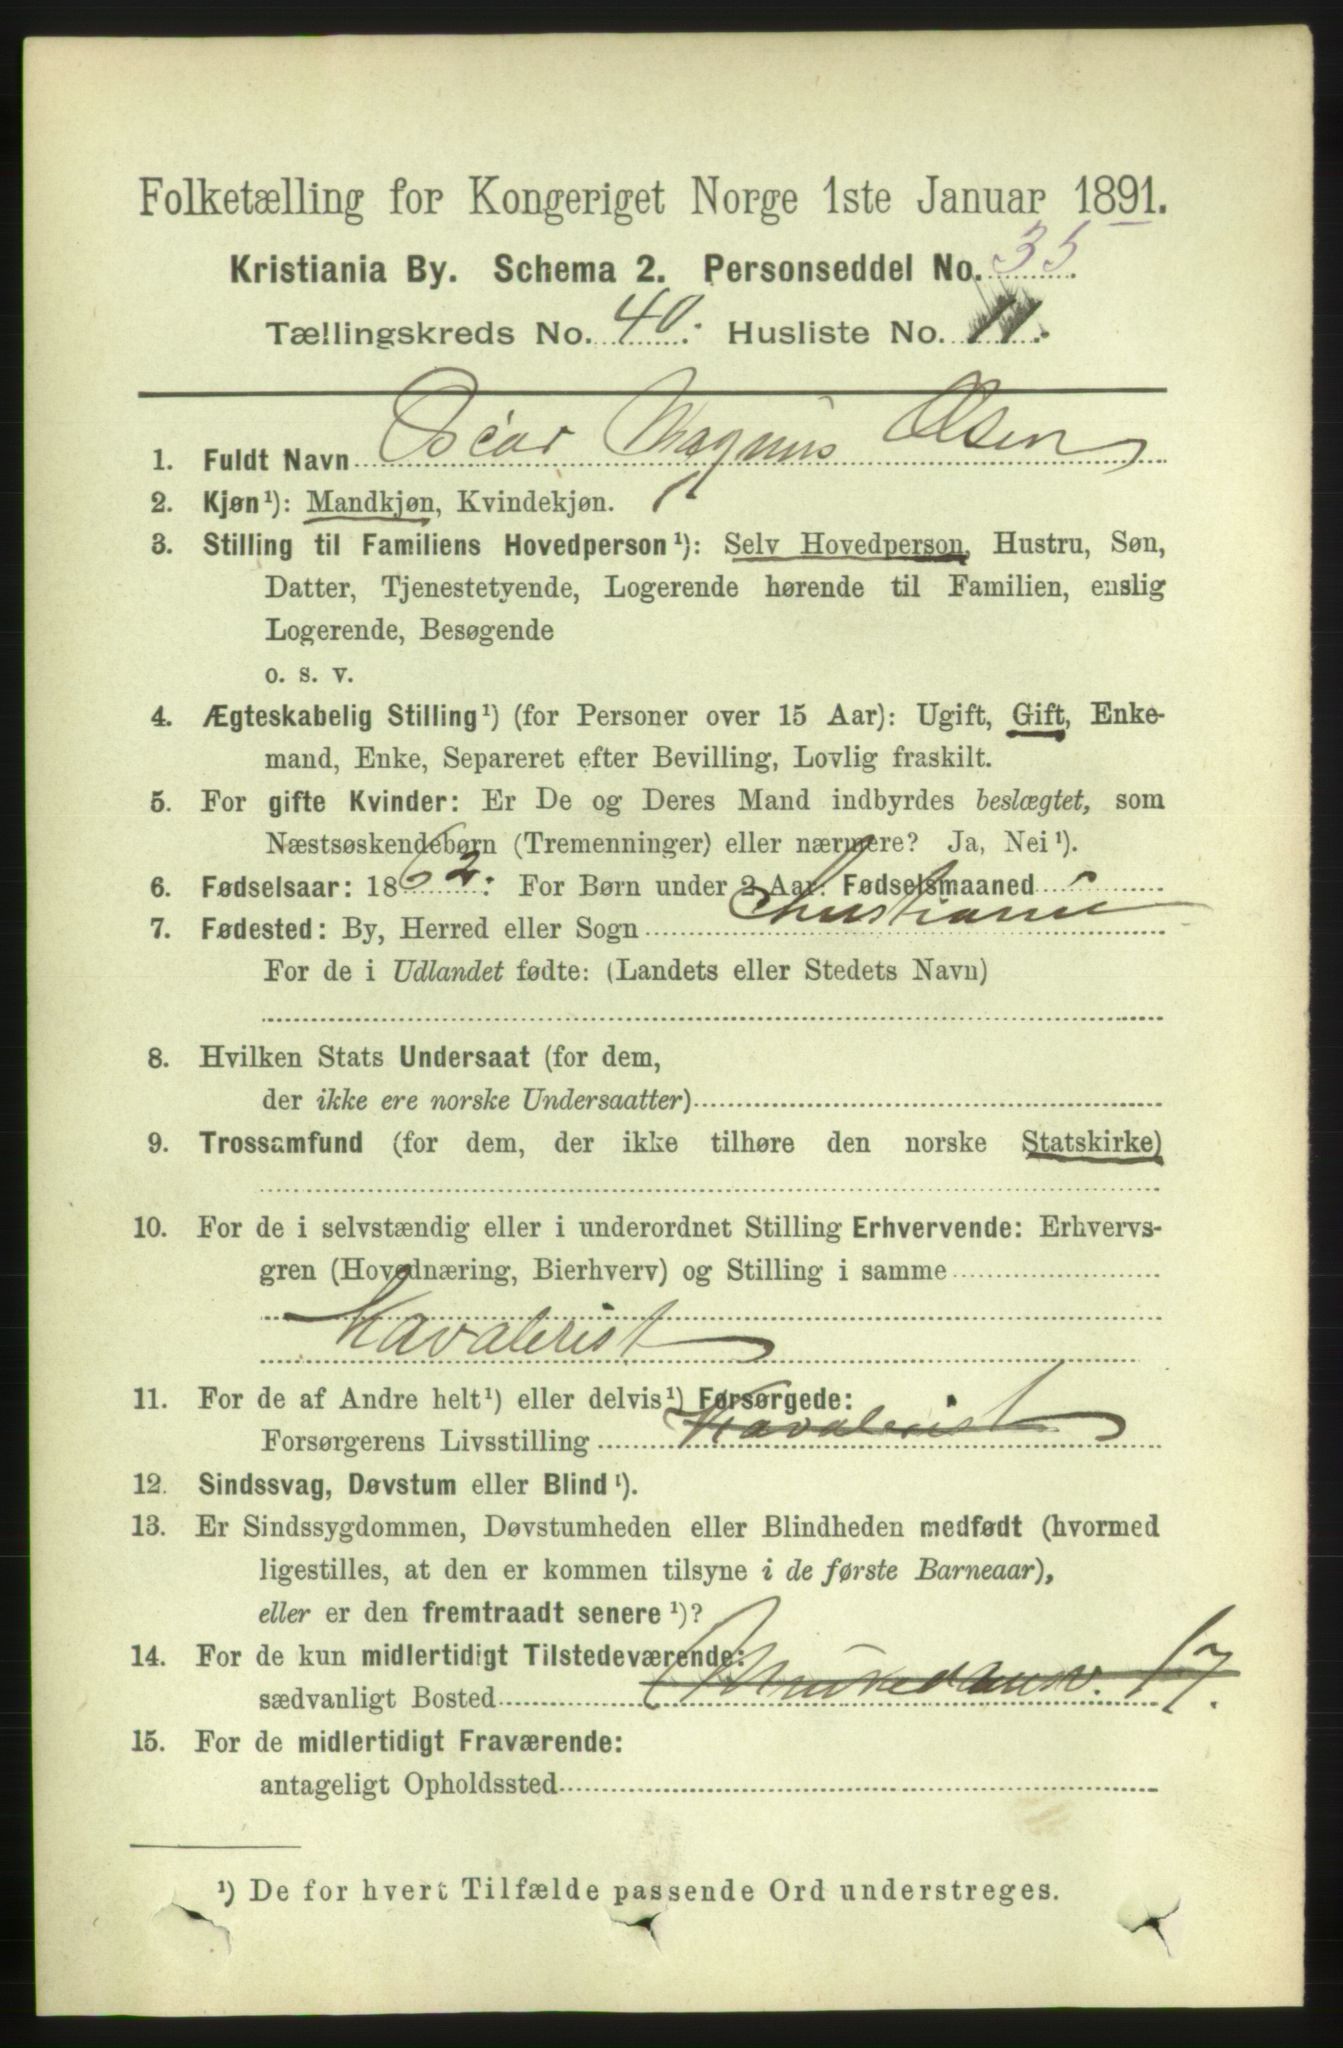 Folketælling for Kongeriget Norge 1ste Januar 1891.
Kristiania By. Schema 2. Personseddel No. 35.
Tællingskreds No. 40. Husliste No. 11.
1. Fuldt Navn Oscar Magnus Olsen
2. Kjøn¹): Mandkjøn, Kvindekjøn.
3. Stilling til Familiens Hovedperson¹): Selv Hovedperson, Hustru, Søn,
Datter, Tjenestetyende, Logerende hørende til Familien, enslig
Logerende, Besøgende
o. s. v.
4. Ægteskabelig Stilling¹) (for Personer over 15 Aar): Ugift, Gift, Enke-
mand, Enke, Separeret efter Bevilling, Lovlig fraskilt.
5. For gifte Kvinder: Er De og Deres Mand indbyrdes beslægtet, som
Næstsøskendebørn (Tremenninger) eller nærmere? Ja, Nei¹).
6. Fødselsaar: 1862. For Børn under 2 Aar: Fødselsmaaned
7. Fødested: By, Herred eller Sogn Christiania
For de i Udlandet fødte: (Landets eller Stedets Navn)
8. Hvilken Stats Undersaat (for dem,
der ikke ere norske Undersaatter)
9. Trossamfund (for dem, der ikke tilhøre den norske Statskirke)
10. For de i selvstændig eller i underordnet Stilling Erhvervende: Erhvervs-
gren (Hovednæring, Bierhverv) og Stilling i samme
Kavalerist
11. For de af Andre helt¹) eller delvis¹) Forsørgede:
Forsørgerens Livsstilling Kavalerist
12. Sindssvag, Døvstum eller Blind¹).
13. Er Sindssygdommen, Døvstumheden eller Blindheden medfødt (hvormed
ligestilles, at den er kommen tilsyne i de første Barneaar),
eller er den fremtraadt senere¹)?
14. For de kun midlertidigt Tilstedeværende:
sædvanligt Bosted 17.
15. For de midlertidigt Fraværende:
antageligt Opholdssted
¹) De for hvert Tilfælde passende Ord understreges.